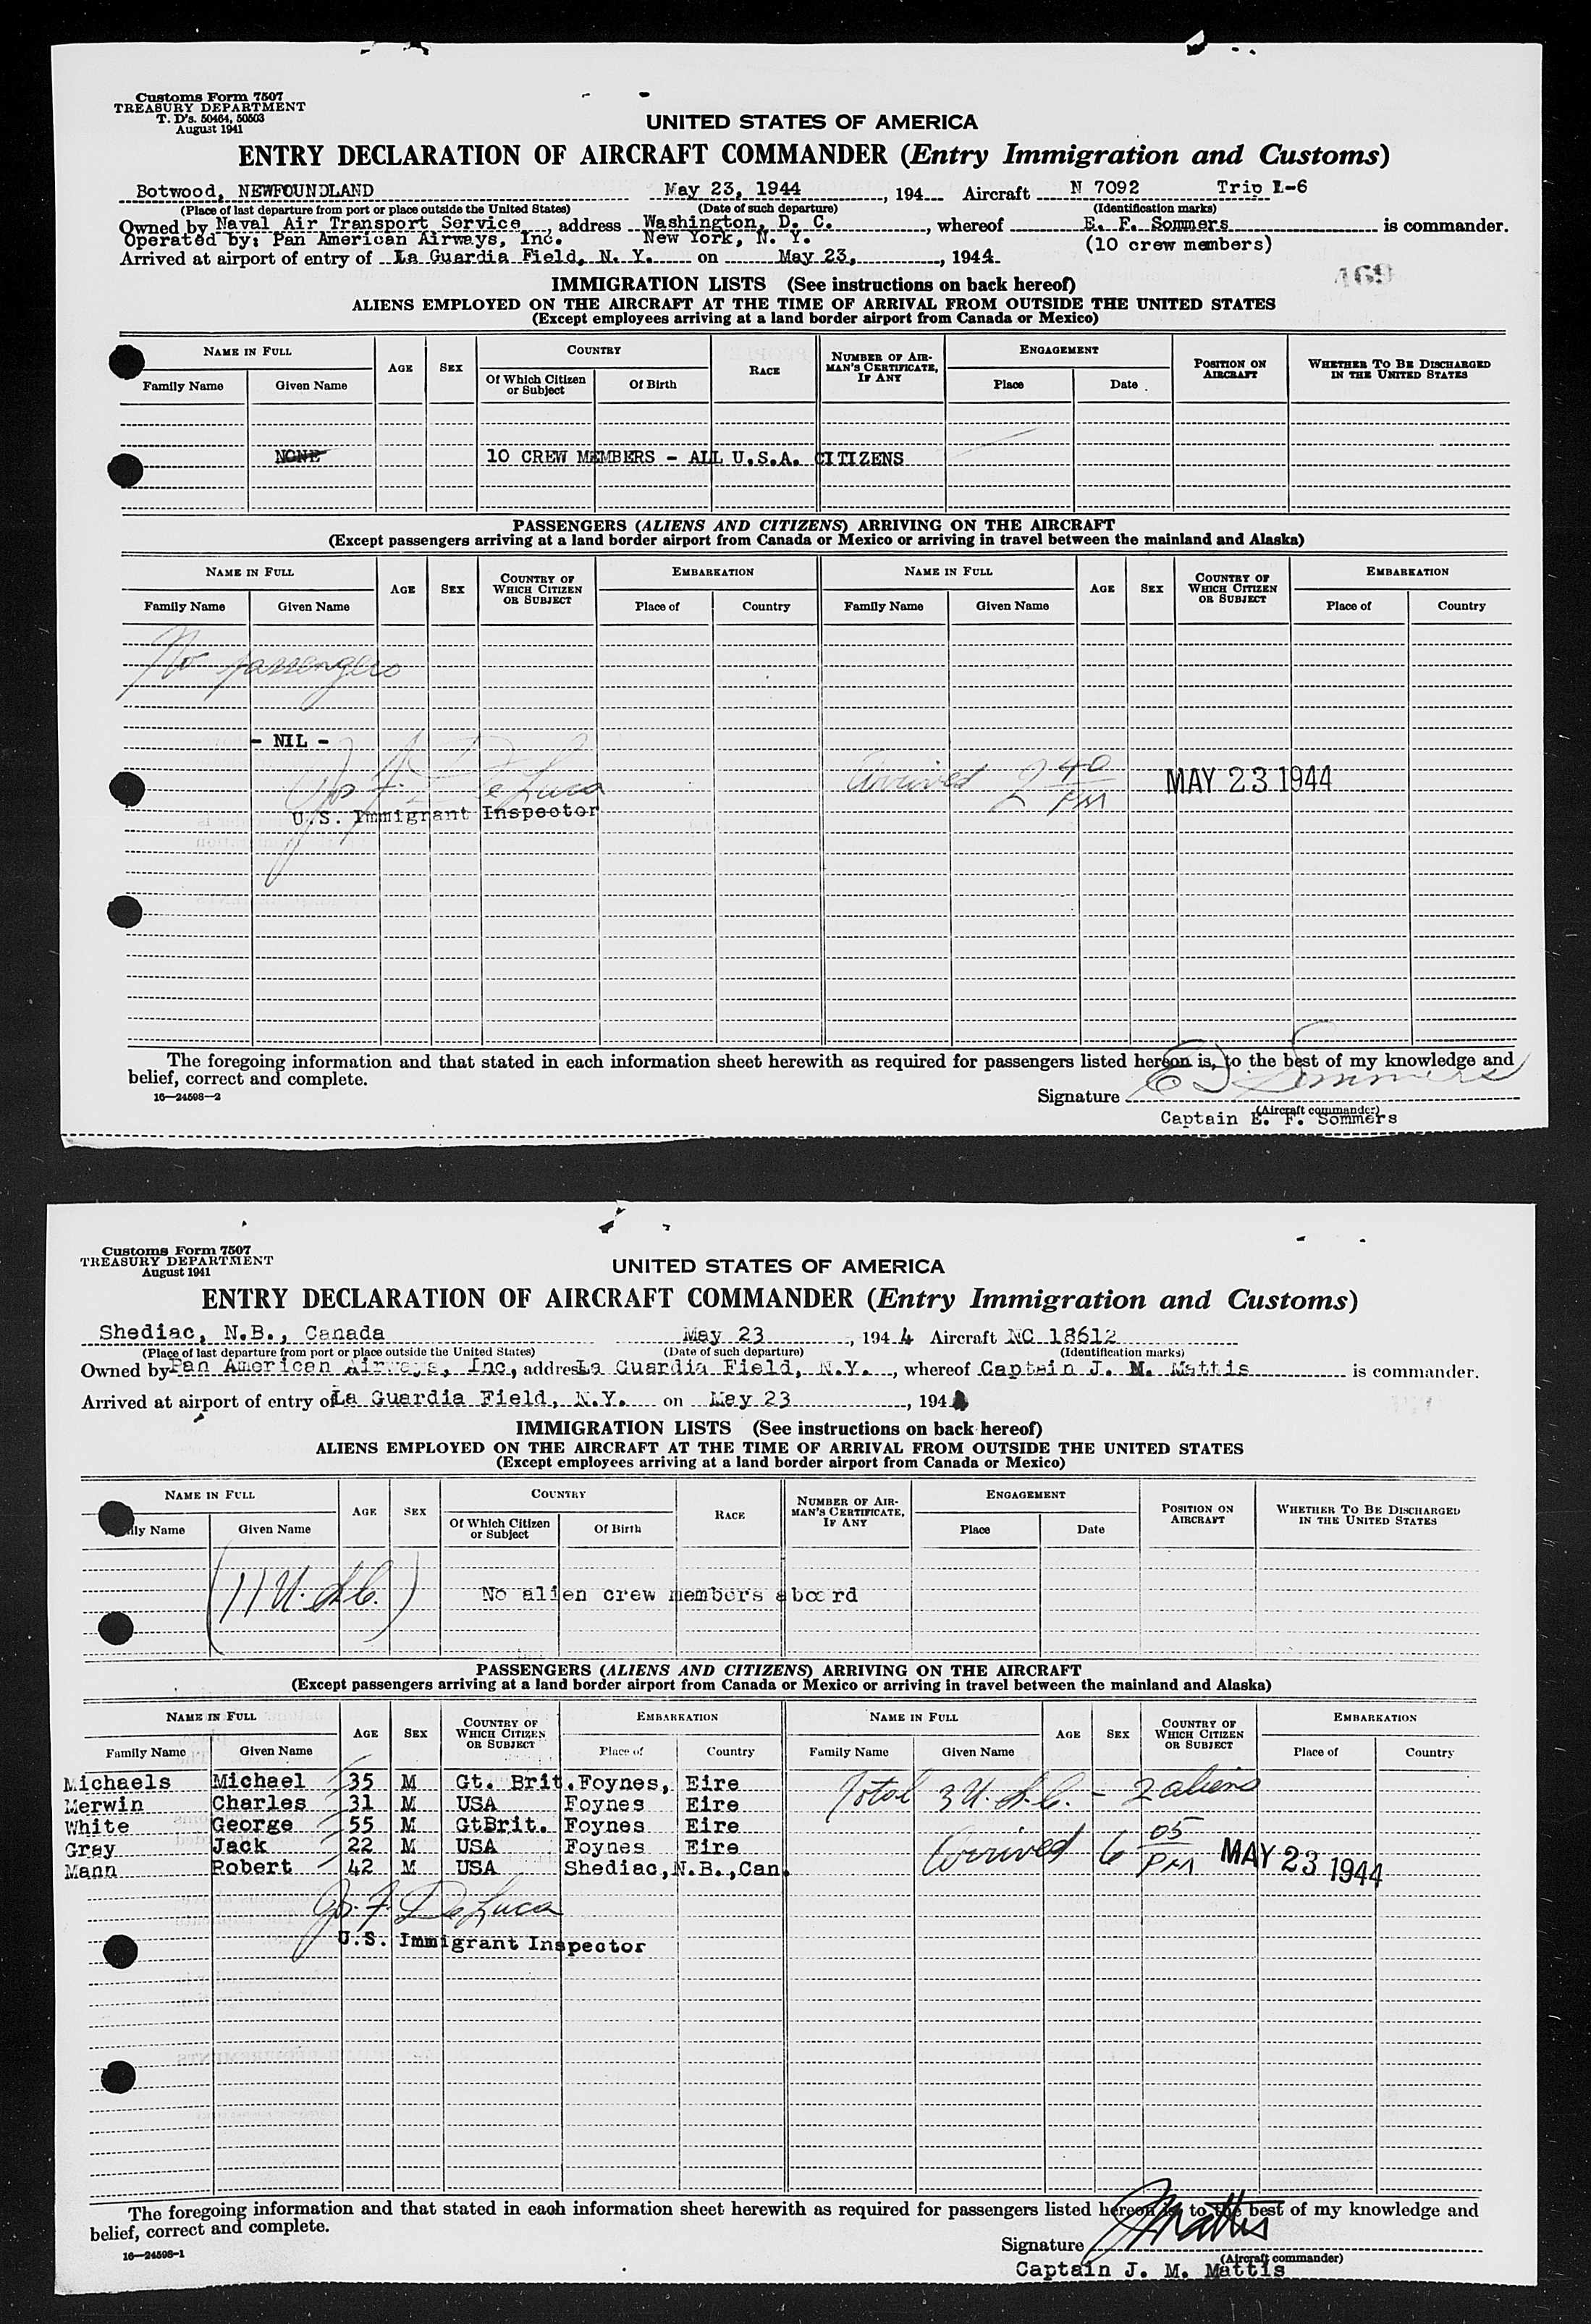 Customs Form 7507
TREASURY DEPARTMENT
T. D's. 50464, 50503
August 1941
UNITED STATES OF AMERICA
ENTRY DECLARATION OF AIRCRAFT COMMANDER (Entry Immigration and Customs)
Botwood, NEWFOUNDLAND May 23, 1944, 194 Aircraft N 7092 Trip L-6
(Place of last departure from port or place outside the United States) (Date of such departure) (Identification marks)
Owned by Naval Air Transport Service, address Washington, D. C., whereof E. F. Sommers is commander.
Operated by: Pan American Airways, Inc. New York, N. Y. (10 crew members)
Arrived at airport of entry of La Guardia Field, N. Y. on May 23, , 1944
IMMIGRATION LISTS (See instructions on back hereof)
ALIENS EMPLOYED ON THE AIRCRAFT AT THE TIME OF ARRIVAL FROM OUTSIDE THE UNITED STATES
(Except employees arriving at a land border airport from Canada or Mexico)
NAME IN FULL AGE SEX COUNTRY RACE NUMBER OF AIRMAN'S CERTIFICATE, IF ANY ENGAGEMENT POSITION ON AIRCRAFT WHETHER TO BE DISCHARGED IN THE UNITED STATES
Family Name Given Name Of Which Citizen or Subject Of Birth Place Date
NONE 10 CREW MEMBERS - ALL U.S.A. CITIZENS
PASSENGERS (ALIENS AND CITIZENS) ARRIVING ON THE AIRCRAFT
(Except passengers arriving at a land border airport from Canada or Mexico or arriving in travel between the mainland and Alaska)
NAME IN FULL AGE SEX COUNTRY OF WHICH CITIZEN OR SUBJECT EMBARKATION NAME IN FULL AGE SEX COUNTRY OF WHICH CITIZEN OR SUBJECT EMBARKATION
Family Name Given Name Place of Country Family Name Given Name Place of Country
No passengers
- NIL -
Jos F. DeLuca Arrived 2 40 PM MAY 23 1944
U.S. Immigrant Inspector
The foregoing information and that stated in each information sheet herewith as required for passengers listed hereon is, to the best of my knowledge and
belief, correct and complete.
16—24598-2
Signature E F Sommers
(Aircraft commander)
Captain E. F. Sommers
Customs Form 7507
TREASURY DEPARTMENT
August 1941
UNITED STATES OF AMERICA
ENTRY DECLARATION OF AIRCRAFT COMMANDER (Entry Immigration and Customs)
Shediac, N.B., Canada May 23, 1944 Aircraft NC 18612
(Place of last departure from port or place outside the United States) (Date of such departure) (Identification marks)
Owned by Pan American Airways, Inc, address La Guardia Field, N.Y., whereof Captain J. M. Mattis is commander.
Arrived at airport of entry of La Guardia Field, N.Y. on May 23, 194
IMMIGRATION LISTS (See instructions on back hereof)
ALIENS EMPLOYED ON THE AIRCRAFT AT THE TIME OF ARRIVAL FROM OUTSIDE THE UNITED STATES
(Except employees arriving at a land border airport from Canada or Mexico)
NAME IN FULL AGE SEX COUNTRY RACE NUMBER OF AIRMAN'S CERTIFICATE, IF ANY ENGAGEMENT POSITION ON AIRCRAFT WHETHER TO BE DISCHARGED IN THE UNITED STATES
ily Name Given Name Of Which Citizen or Subject Of Birth Place Date
(11 U.S.C.) No alien crew members aboard
PASSENGERS (ALIENS AND CITIZENS) ARRIVING ON THE AIRCRAFT
(Except passengers arriving at a land border airport from Canada or Mexico or arriving in travel between the mainland and Alaska)
NAME IN FULL AGE SEX COUNTRY OF WHICH CITIZEN OR SUBJECT EMBARKATION NAME IN FULL AGE SEX COUNTRY OF WHICH CITIZEN OR SUBJECT EMBARKATION
Family Name Given Name Place of Country Family Name Given Name Place of Country
Michaels Michael 35 M Gt. Brit. Foynes, Eire Total 3 U.S.C. - 2 aliens
Merwin Charles 31 M USA Foynes Eire
White George 55 M GtBrit. Foynes Eire
Grey Jack 22 M USA Foynes Eire Arrived 6 05 PM MAY 23 1944
Mann Robert 42 M USA Shediac, N.B., Can.
Jos. F. DeLuca
U.S. Immigrant Inspector
The foregoing information and that stated in each information sheet herewith as required for passengers listed hereon is to the best of my knowledge and
belief, correct and complete.
16—24598-1
Signature J M Mattis
(Aircraft commander)
Captain J. M. Mattis